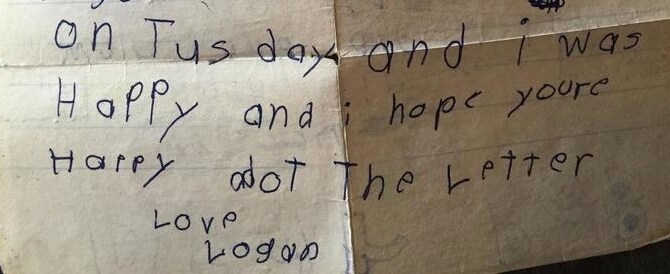 on Tus day and i was
Happy and i hope youre
Happy adot The Letter
Love
Logan